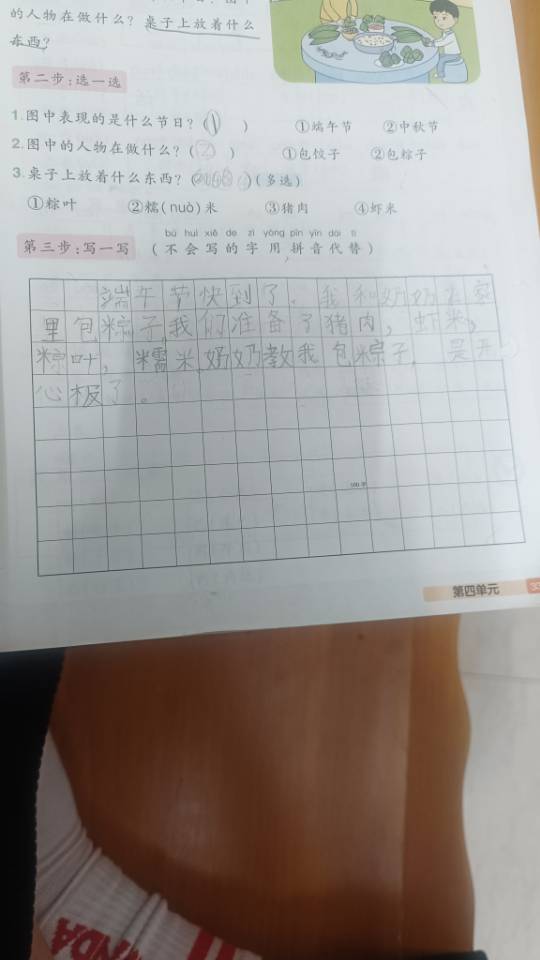 的人物在做什么？桌子上放着什么
东西？
第二步：选一选
1.图中表现的是什么节日？(1) ①端午节 ②中秋节
2.图中的人物在做什么？(②) ①包饺子 ②包粽子
3.桌子上放着什么东西？( )(多选)
①粽叶 ②糯(nuò)米 ③猪肉 ④虾米
bú huì xiě de zì yòng pīn yīn dài tì
第三步：写一写 (不会写的字用拼音代替)
端午节快到了。我和奶奶在家
里包粽子，我们准备了猪肉，虾米，
粽叶，糯米，奶奶教我包粽子，是开
心极了。
100字
第四单元